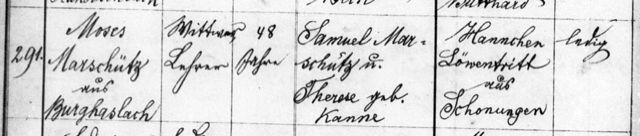 291.
Moses
Marschütz
aus
Burghaslach
Wittwer
Lehrer
48
Jahre
Samuel Mar-
schütz u.
Therese geb.
Kanne
Hannchen
Löwentritt
aus
Schonungen
ledig